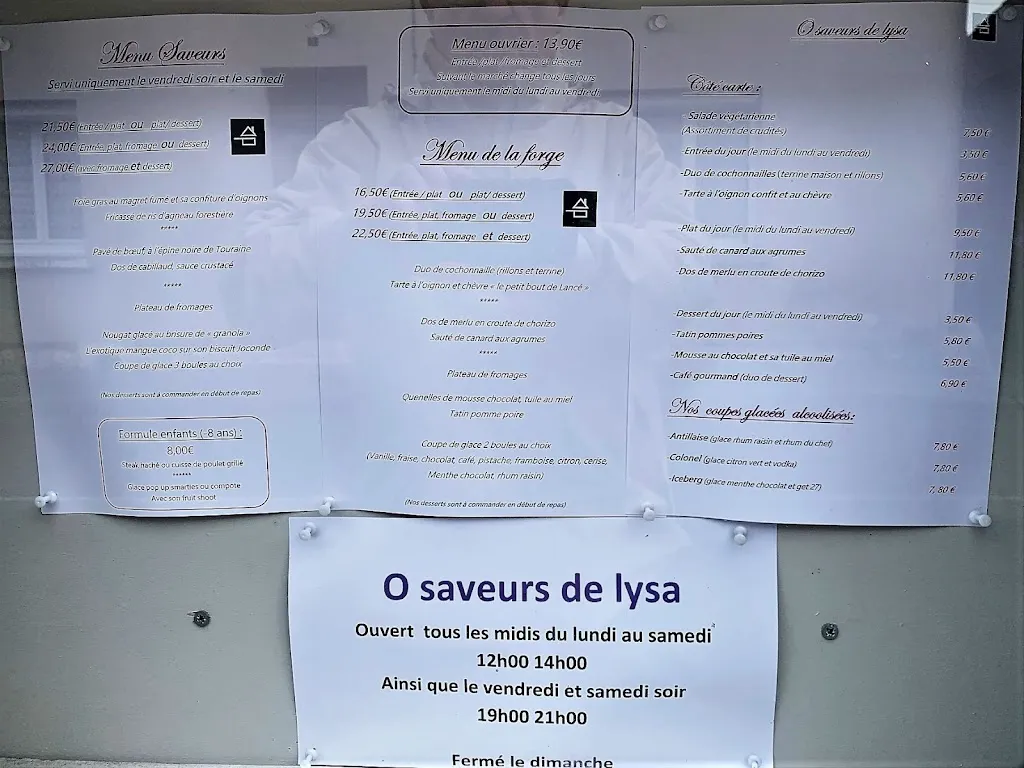 Menu Saveurs
Servi uniquement le vendredi soir et le samedi
21,50€ (Entrée / plat ou plat/ dessert)
24,00€ (Entrée, plat, fromage ou dessert)
27,00€ (avec fromage et dessert)
Foie gras au magret fumé et sa confiture d'oignons
Fricassé de ris d'agneau forestière
*****
Pavé de bœuf, à l'épine noire de Touraine
Dos de cabillaud, sauce crustacé
*****
Plateau de fromages
Nougat glacé au brisure de « granola »
L'exotique mangue coco sur son biscuit Joconde
Coupe de glace 3 boules au choix
(Nos desserts sont à commander en début de repas)
Formule enfants (-8 ans) :
8,00€
Steak haché ou cuisse de poulet grillé
******
Glace pop up smarties ou compote
Avec son fruit shoot
Menu ouvrier : 13,90€
Entrée /plat /fromage et dessert
Suivant le marché change tous les jours
Servi uniquement le midi du lundi au vendredi
Menu de la forge
16,50€ (Entrée / plat ou plat/ dessert)
19,50€ (Entrée, plat, fromage ou dessert)
22,50€ (Entrée, plat, fromage et dessert)
Duo de cochonnaille (rillons et terrine)
Tarte à l'oignon et chèvre « le petit bout de Lancé »
*****
Dos de merlu en croute de chorizo
Sauté de canard aux agrumes
*****
Plateau de fromages
Quenelles de mousse chocolat, tuile au miel
Tatin pomme poire
Coupe de glace 2 boules au choix
(Vanille, fraise, chocolat, café, pistache, framboise, citron, cerise,
Menthe chocolat, rhum raisin)
(Nos desserts sont à commander en début de repas)
O saveurs de lysa
Côté carte :
- Salade végétarienne
(Assortiment de crudités) 7,50 €
-Entrée du jour (le midi du lundi au vendredi) 3,50 €
-Duo de cochonnailles (terrine maison et rillons) 5,60 €
-Tarte à l'oignon confit et au chèvre 5,60 €
-Plat du jour (le midi du lundi au vendredi) 9,50 €
-Sauté de canard aux agrumes 11,80 €
-Dos de merlu en croute de chorizo 11,80 €
-Dessert du jour (le midi du lundi au vendredi) 3,50 €
-Tatin pommes poires 5,80 €
-Mousse au chocolat et sa tuile au miel 5,50 €
-Café gourmand (duo de dessert) 6,90 €
Nos coupes glacées alcoolisées:
-Antillaise (glace rhum raisin et rhum du chef) 7,80 €
-Colonel (glace citron vert et vodka) 7,80 €
-Iceberg (glace menthe chocolat et get 27) 7, 80 €
O saveurs de lysa
Ouvert tous les midis du lundi au samedi
12h00 14h00
Ainsi que le vendredi et samedi soir
19h00 21h00
Fermé le dimanche